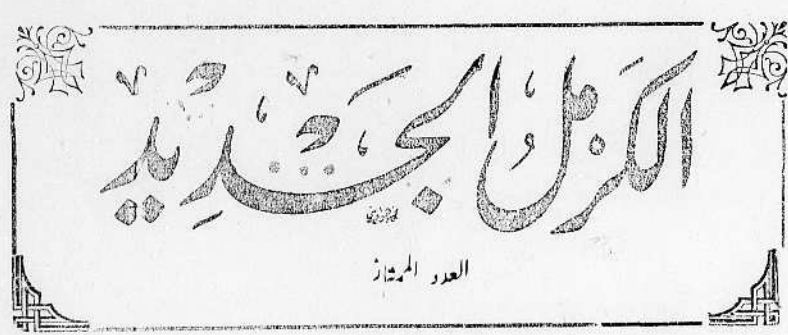 الكرمل الجديد
العدد الممتاز